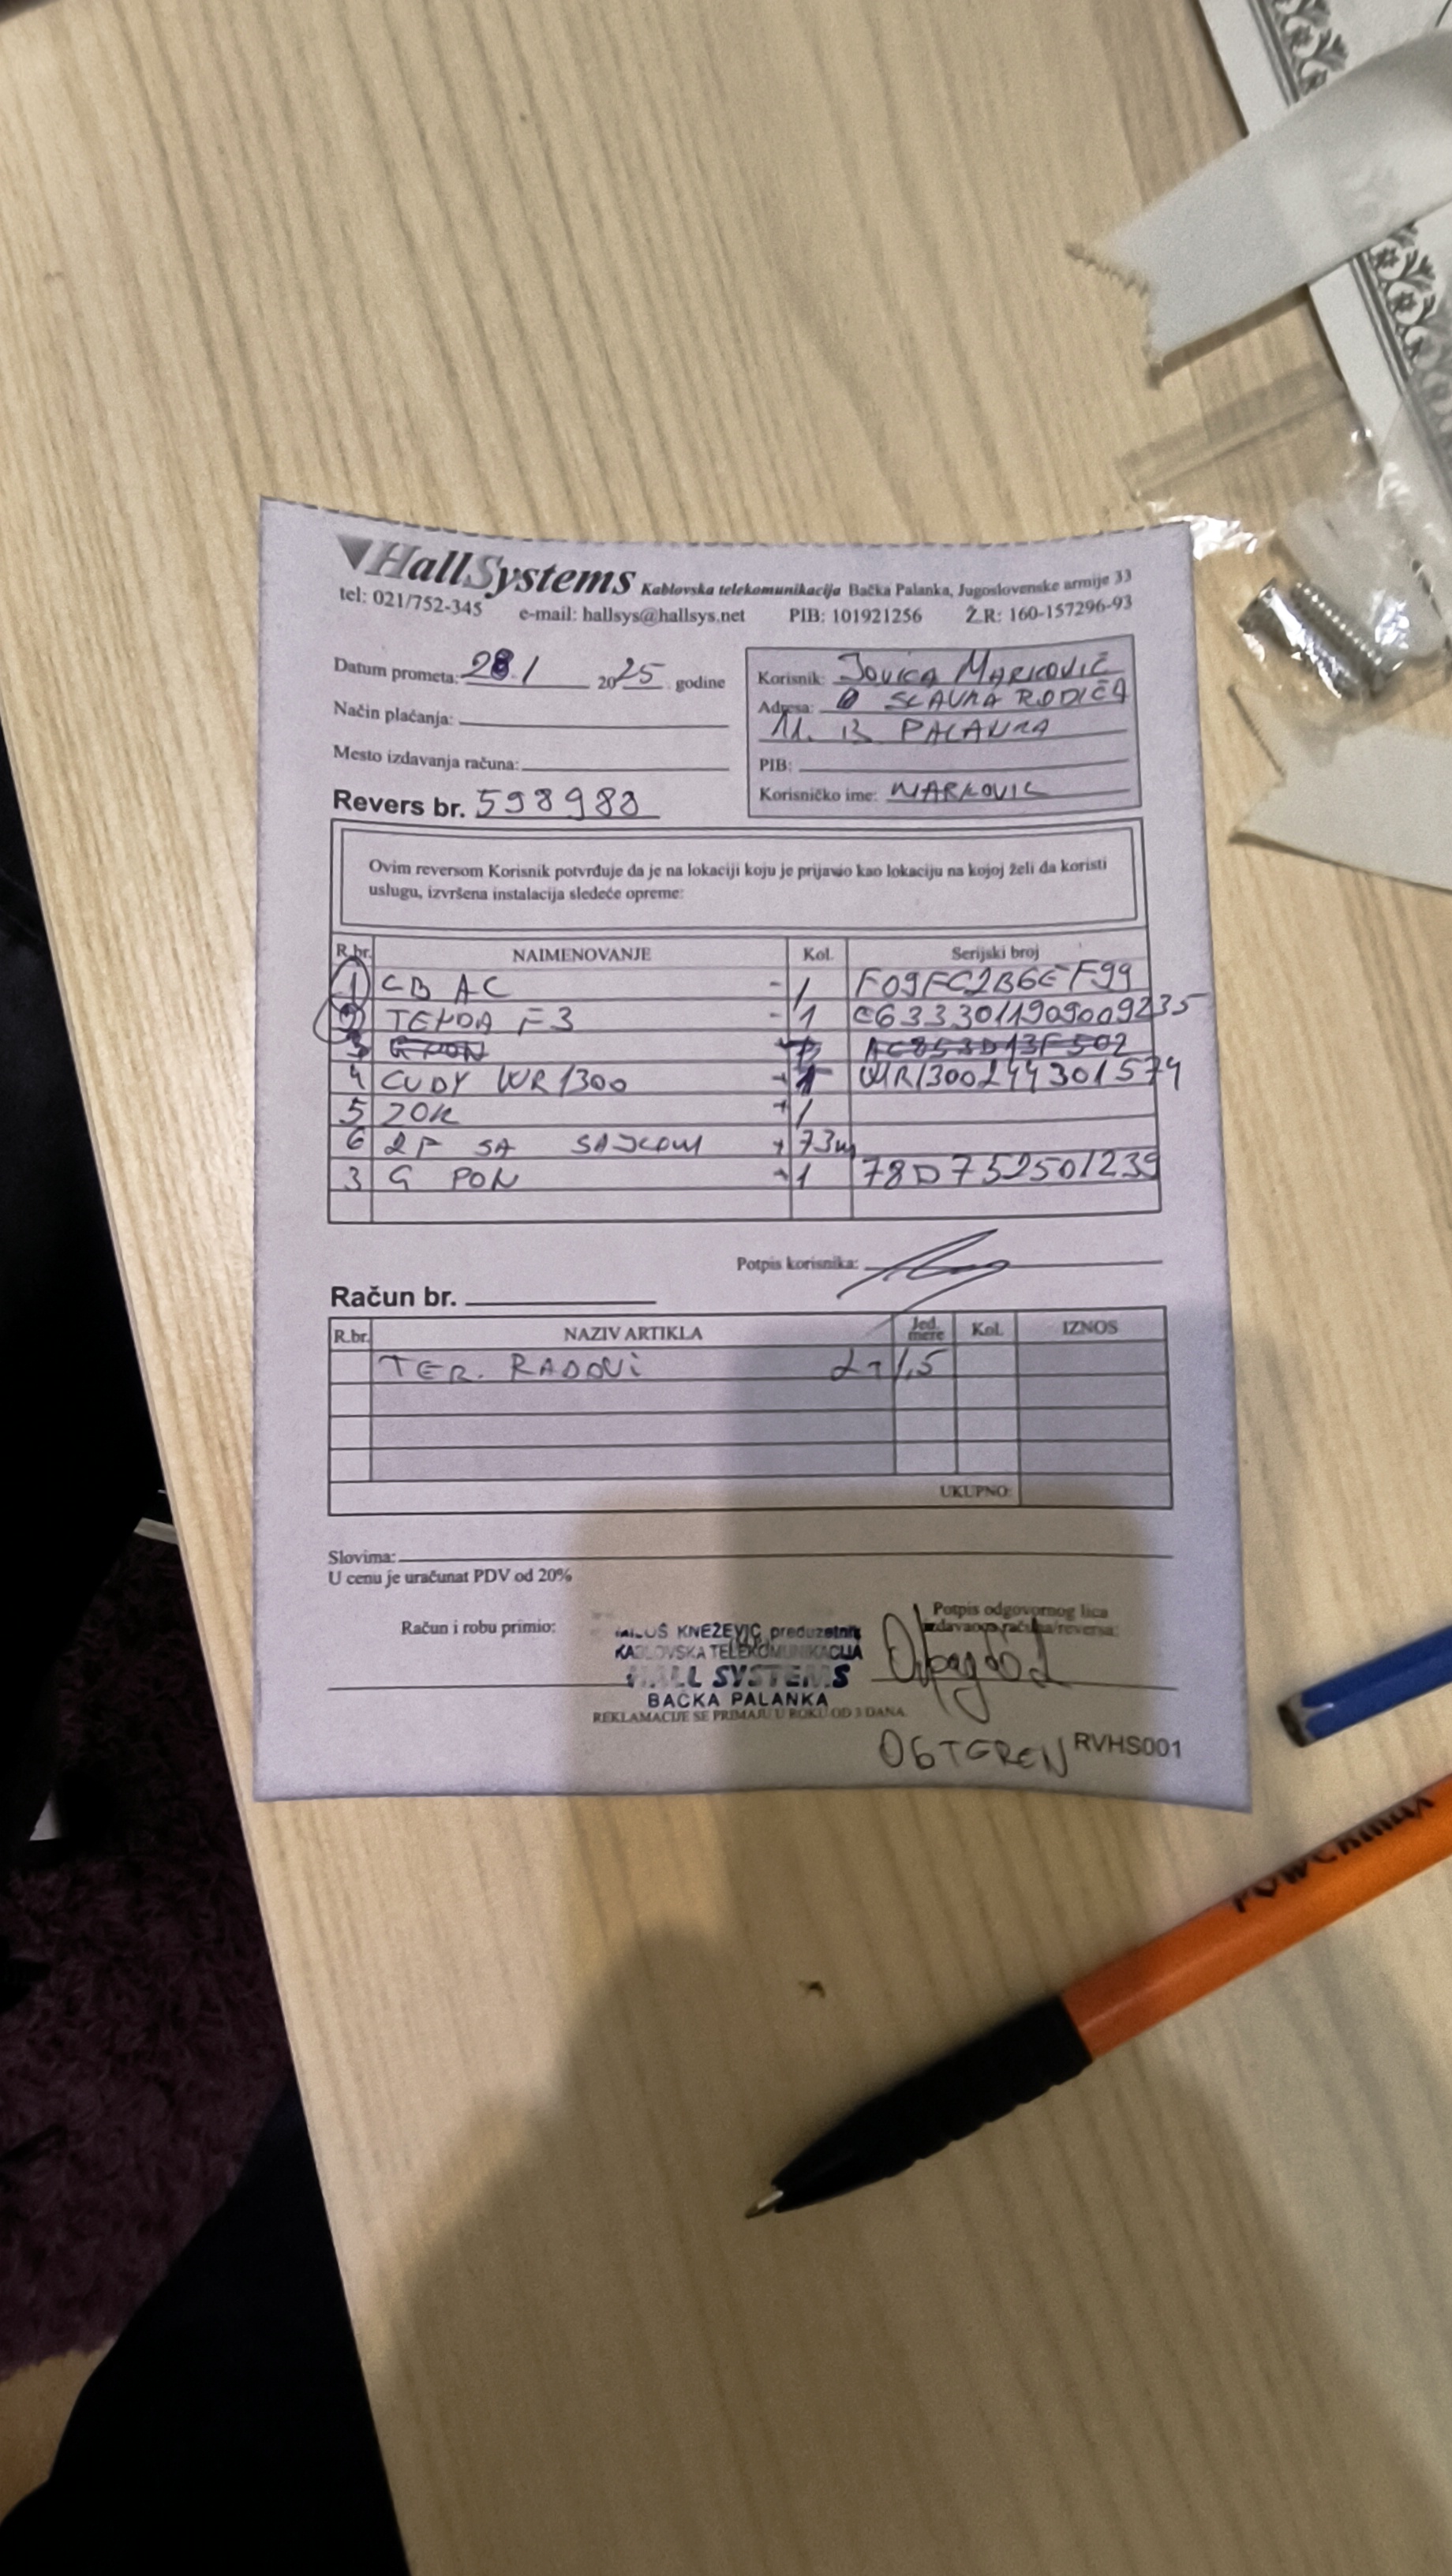 HallSystems Kablovska telekomunikacija Bačka Palanka, Jugoslovenske armije 33
tel: 021/752-345 e-mail: hallsys@hallsys.net PIB: 101921256 Ž.R: 160-157296-93
Datum prometa: 28.1 2025 godine
Način plaćanja:
Mesto izdavanja računa:
Revers br. 598980
Korisnik: JOVICA MARKOVIČ
Adresa: SLAVKA RODIĆA
11. B PALANKA
PIB:
Korisničko ime: MARKOVIC
Ovim reversom Korisnik potvrđuje da je na lokaciji koju je prijavio kao lokaciju na kojoj želi da koristi
uslugu, izvršena instalacija sledeće opreme:
R.br. NAIMENOVANJE Kol. Serijski broj
1 CB AC - 1 F09FC2B6EF99
2 TENDA F3 - 1 e6333011909009235
3 GPON AC853D13F502
4 CUDY WR1300 - 1 WR1300244301574
5 ZOK - 1
6 2F SA SAJLOM - 73m
3 G PON - 1 78D752501239
Potpis korisnika:
Račun br.
R.br. NAZIV ARTIKLA Jed. mere Kol. IZNOS
TER. RADOVI 2 1,5
UKUPNO:
Slovima:
U cenu je uračunat PDV od 20%
Račun i robu primio:
Potpis odgovornog lica
izdavaoca računa/reversa:
MILOŠ KNEŽEVIĆ preduzetnik
KABLOVSKA TELEKOMUNIKACIJA
HALL SYSTEMS
BAČKA PALANKA
REKLAMACIJE SE PRIMAJU U ROKU OD 3 DANA.
06TEREN RVHS001
POWERMAX